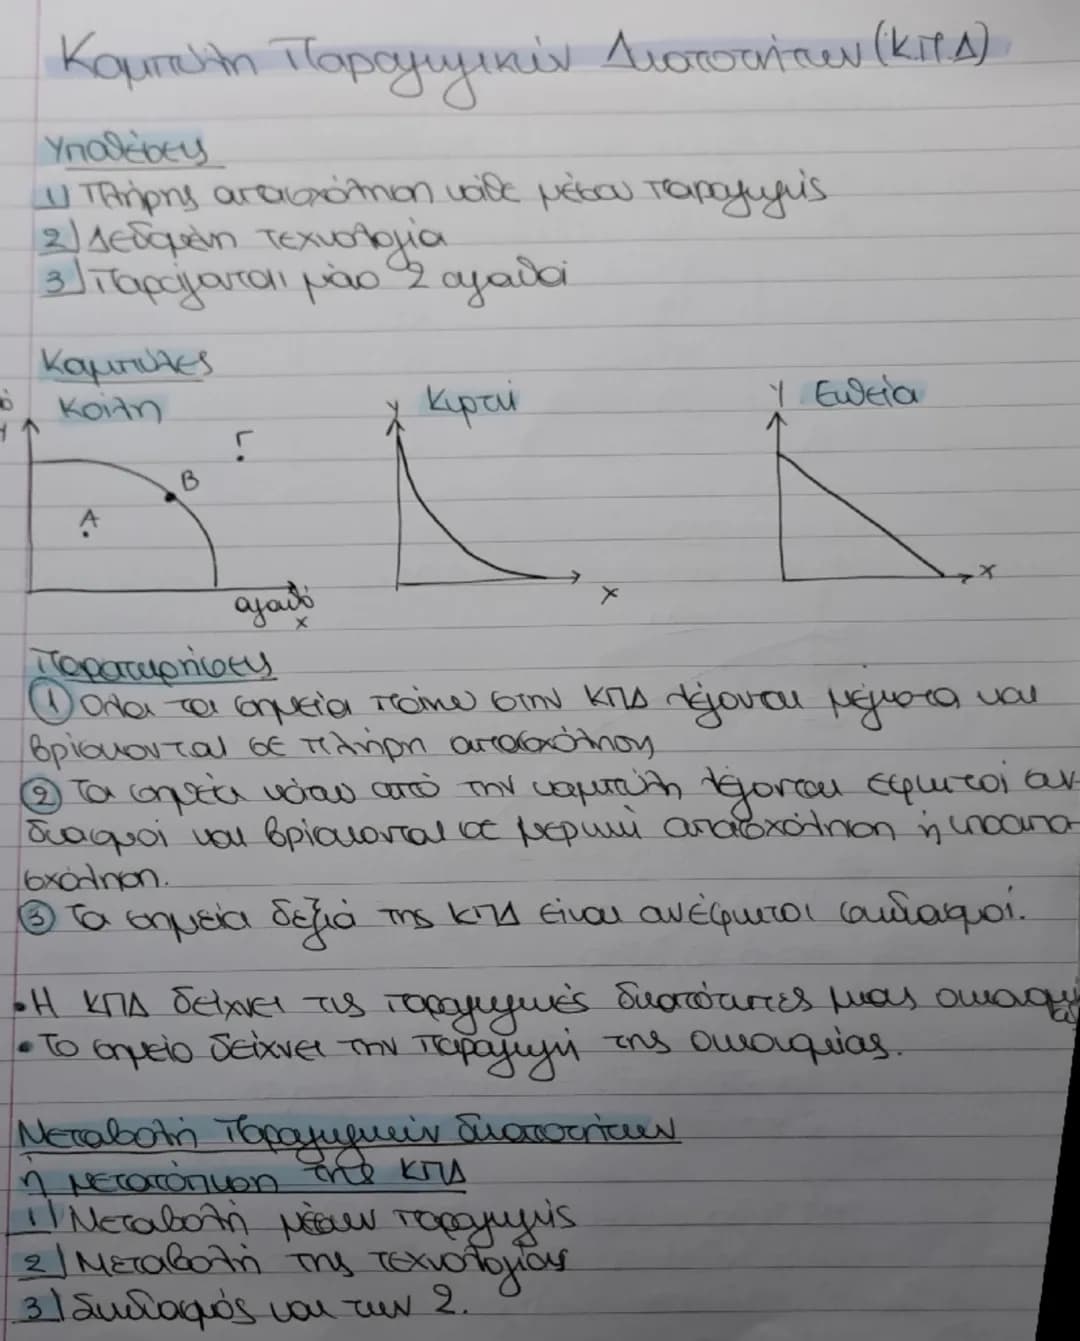 Καμπύλη Παραγωγικών Δυνατοτήτων (Κ.Π.Δ)
Υποθέσεις
1) Πλήρης απασχόληση κάθε μέσου παραγωγής
2) Δεδομένη τεχνολογία
3) Παράγονται μόνο 2 αγαθά
Καμπύλες
Κοίλη Κυρτή Ευθεία
Υ Υ Υ
Γ
Β
Α
αγαθό
x x x
Παρατηρήσεις
① Όλα τα σημεία πάνω στην ΚΠΔ λέγονται μέγιστα και
βρίσκονται σε πλήρη απασχόληση
② Τα σημεία κάτω από την καμπύλη λέγονται εφικτοί συν-
δυασμοί και βρίσκονται σε μερική απασχόληση ή υποαπα-
σχόληση.
③ Τα σημεία δεξιά της ΚΠΔ είναι ανέφικτοι συνδυασμοί.
• Η ΚΠΔ δείχνει τις παραγωγικές δυνατότητες μιας οικονομίας
• Το σημείο δείχνει την παραγωγή της οικονομίας.
Μεταβολή Παραγωγικών δυνατοτήτων
ή μετατόπιση της ΚΠΔ
1) Μεταβολή μέσων παραγωγής
2) Μεταβολή της τεχνολογίας
3) Συνδυασμός και των 2.